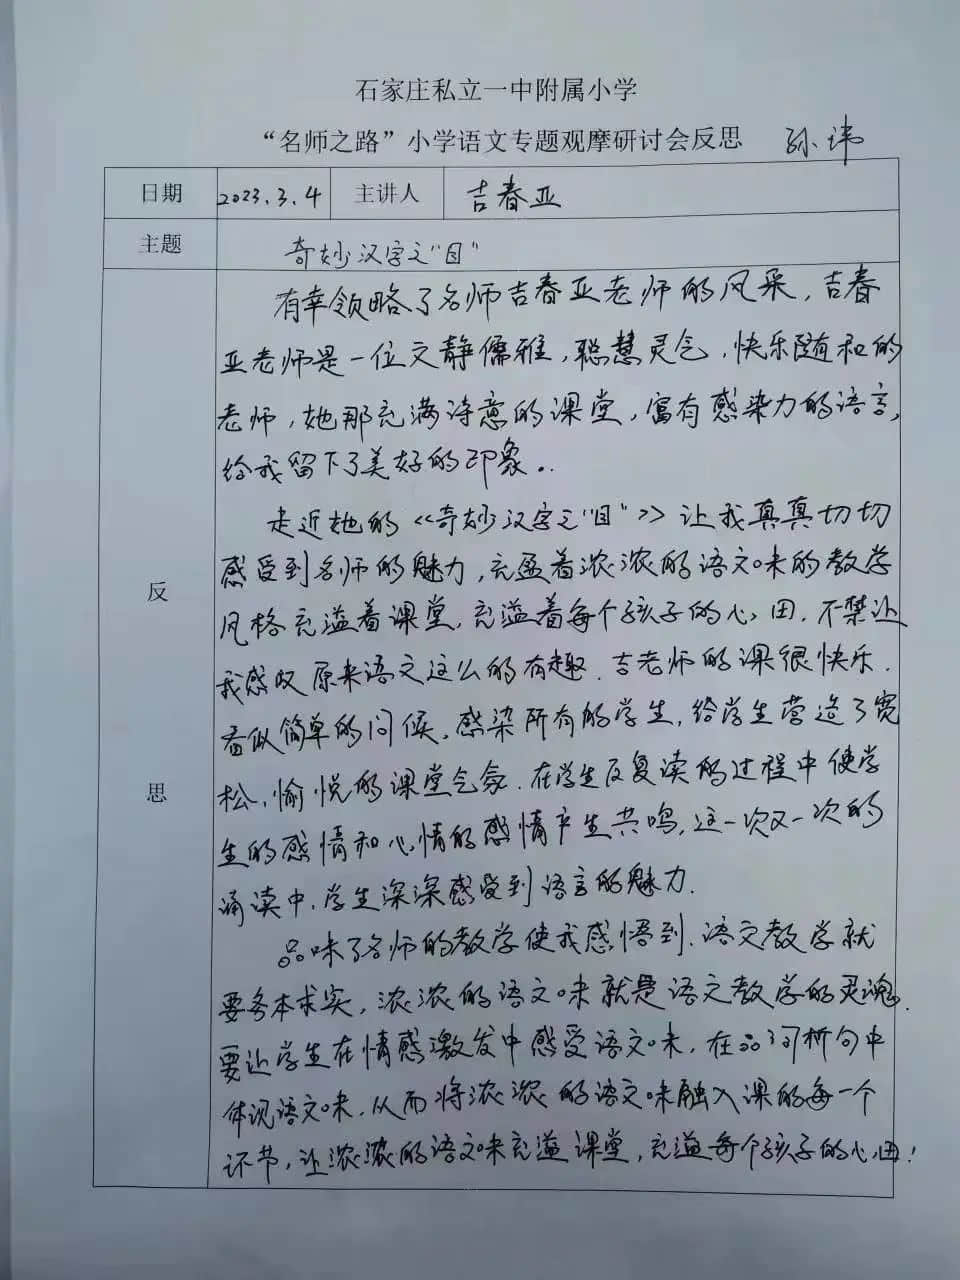 石家庄私立一中附属小学
“名师之路”小学语文专题观摩研讨会反思 孙玮
日期 2023.3.4 主讲人 吉春亚
主题 奇妙汉字之“目”
反思
有幸领略了名师吉春亚老师的风采，吉春
亚老师是一位文静儒雅，聪慧灵气，快乐随和的
老师，她那充满诗意的课堂，富有感染力的语言，
给我留下了美好的印象。
走近她的《奇妙汉字之“目”》让我真真切切
感受到名师的魅力，充盈着浓浓的语文味的教学
风格充溢着课堂，充溢着每个孩子的心田，不禁让
我感叹原来语文这么的有趣．吉老师的课很快乐．
看似简单的问候，感染所有的学生，给学生营造了宽
松、愉悦的课堂气氛．在学生反复读的过程中使学
生的感情和心情的感情产生共鸣，这一次又一次的
诵读中，学生深深感受到语言的魅力．
品味了名师的教学使我感悟到，语文教学就
要务本求实，浓浓的语文味就是语文教学的灵魂．
要让学生在情感激发中感受语文味，在品词析句中
体现语文味，从而将浓浓的语文味融入课的每一个
环节，让浓浓的语文味充溢课堂，充溢每个孩子的心田！